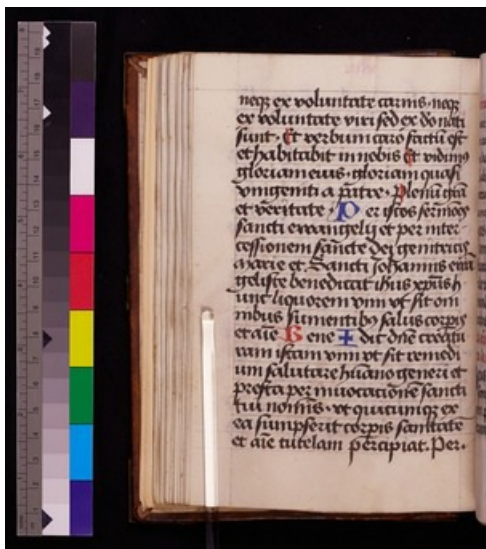 neq; ex voluntate carnis· neq;
ex voluntate viri sed ex do nati
sunt· Et verbum caro factū est
et habitabit in nobis Et vidim9
gloriam eius· gloriam quasi
vnigeniti a patre· Plenū gr̄a
et veritate· Per istos sermōes
sancti ewangelij et per inter
cessionem sancte dei genitricis
marie et Sancti Johannis ewā
geliste benedicat ihus xp̄us h
unc liquorem vini vt sit om
nibus sumentib9 salus corp̄is
et aīe Bene ✚ dic dn̄e creatu
ram istam vini vt sit remedi
um salutare hūano generi et
presta per inuocationē sancti
tui nominis· vt quicumq; ex
ea sumpserit corp̄is sanitatē
et aīe tutelam percipiat. Per·